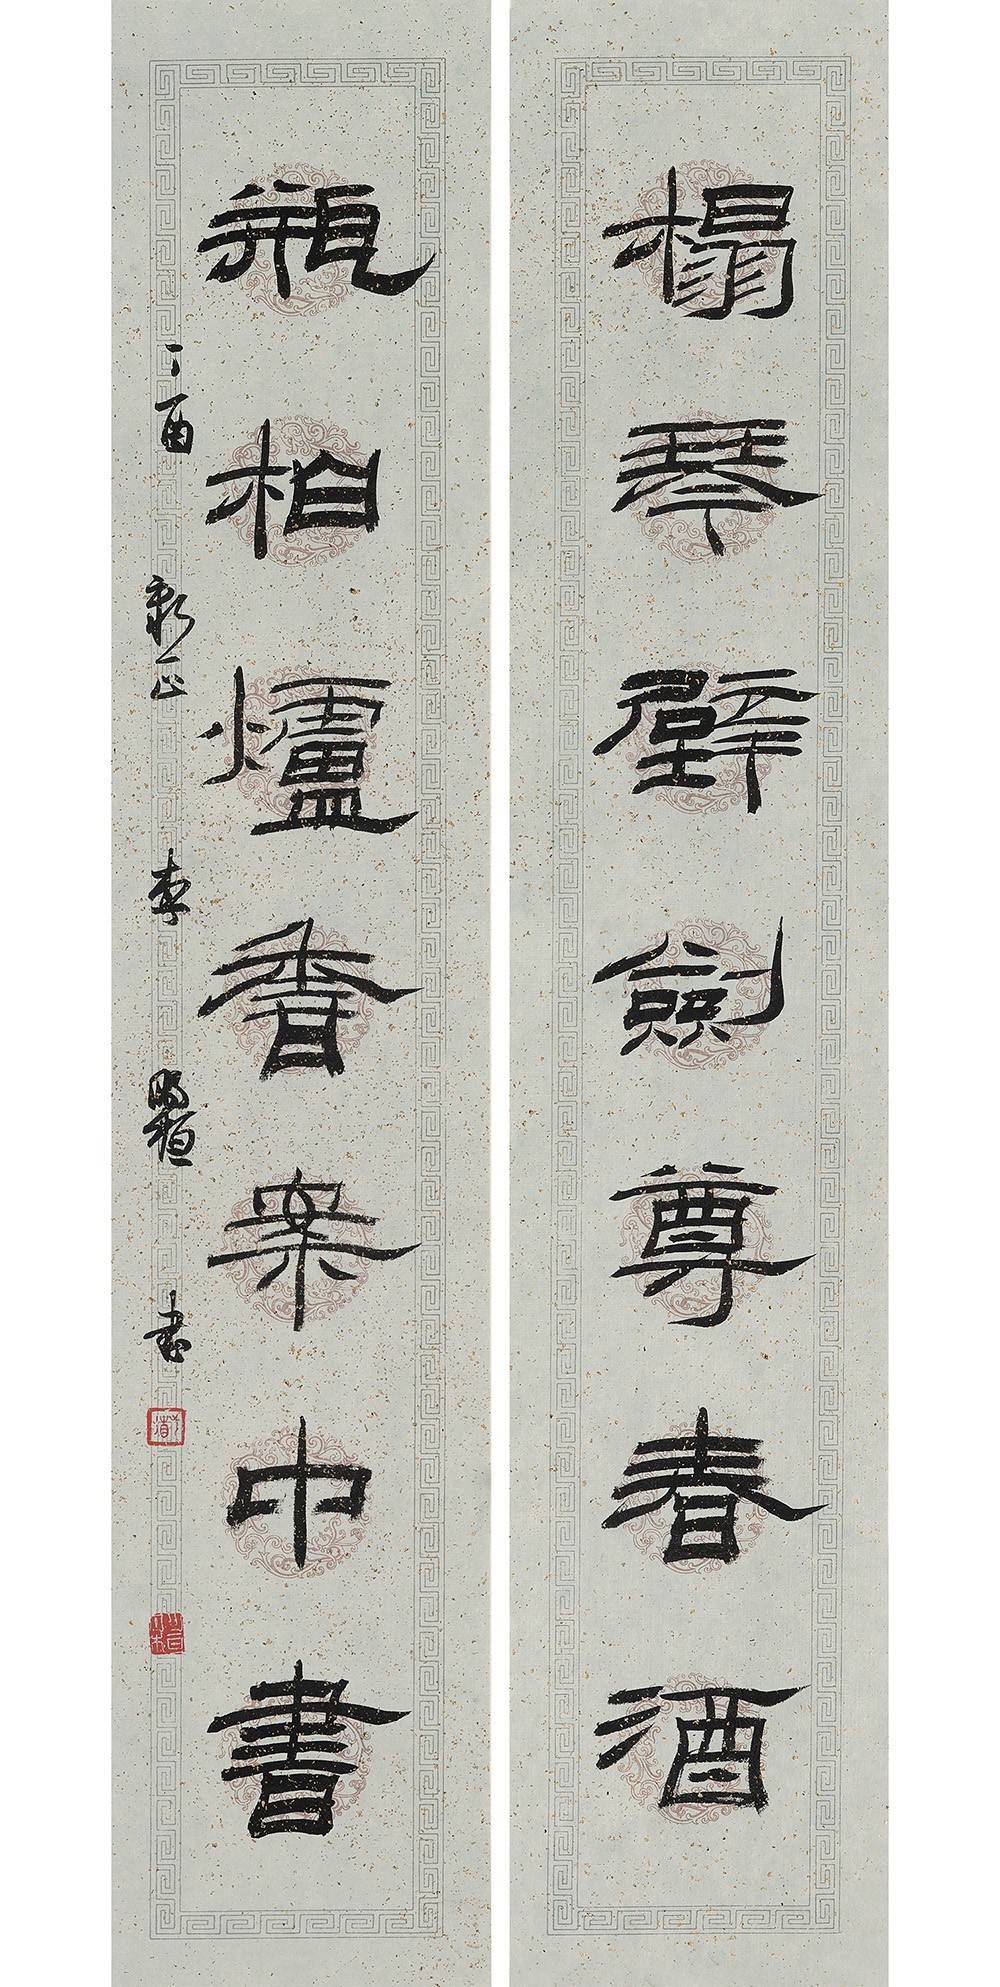 榻琴壁劍尊春酒
瓶柏爐香案中書
丁酉新正春 書